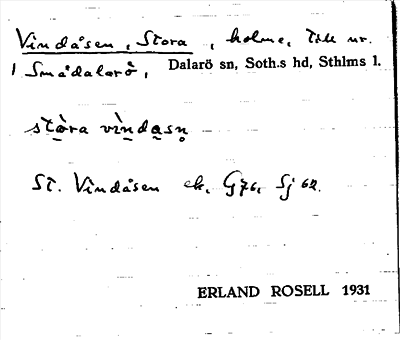 Vindåsen, Stora, holme, till nr.
1 Smådalarö, Dalarö sn, Soth.s hd, Sthlms l.
stòra vìndasn̥
St. Vindåsen ek. G76, Sj 62.
ERLAND ROSELL 1931